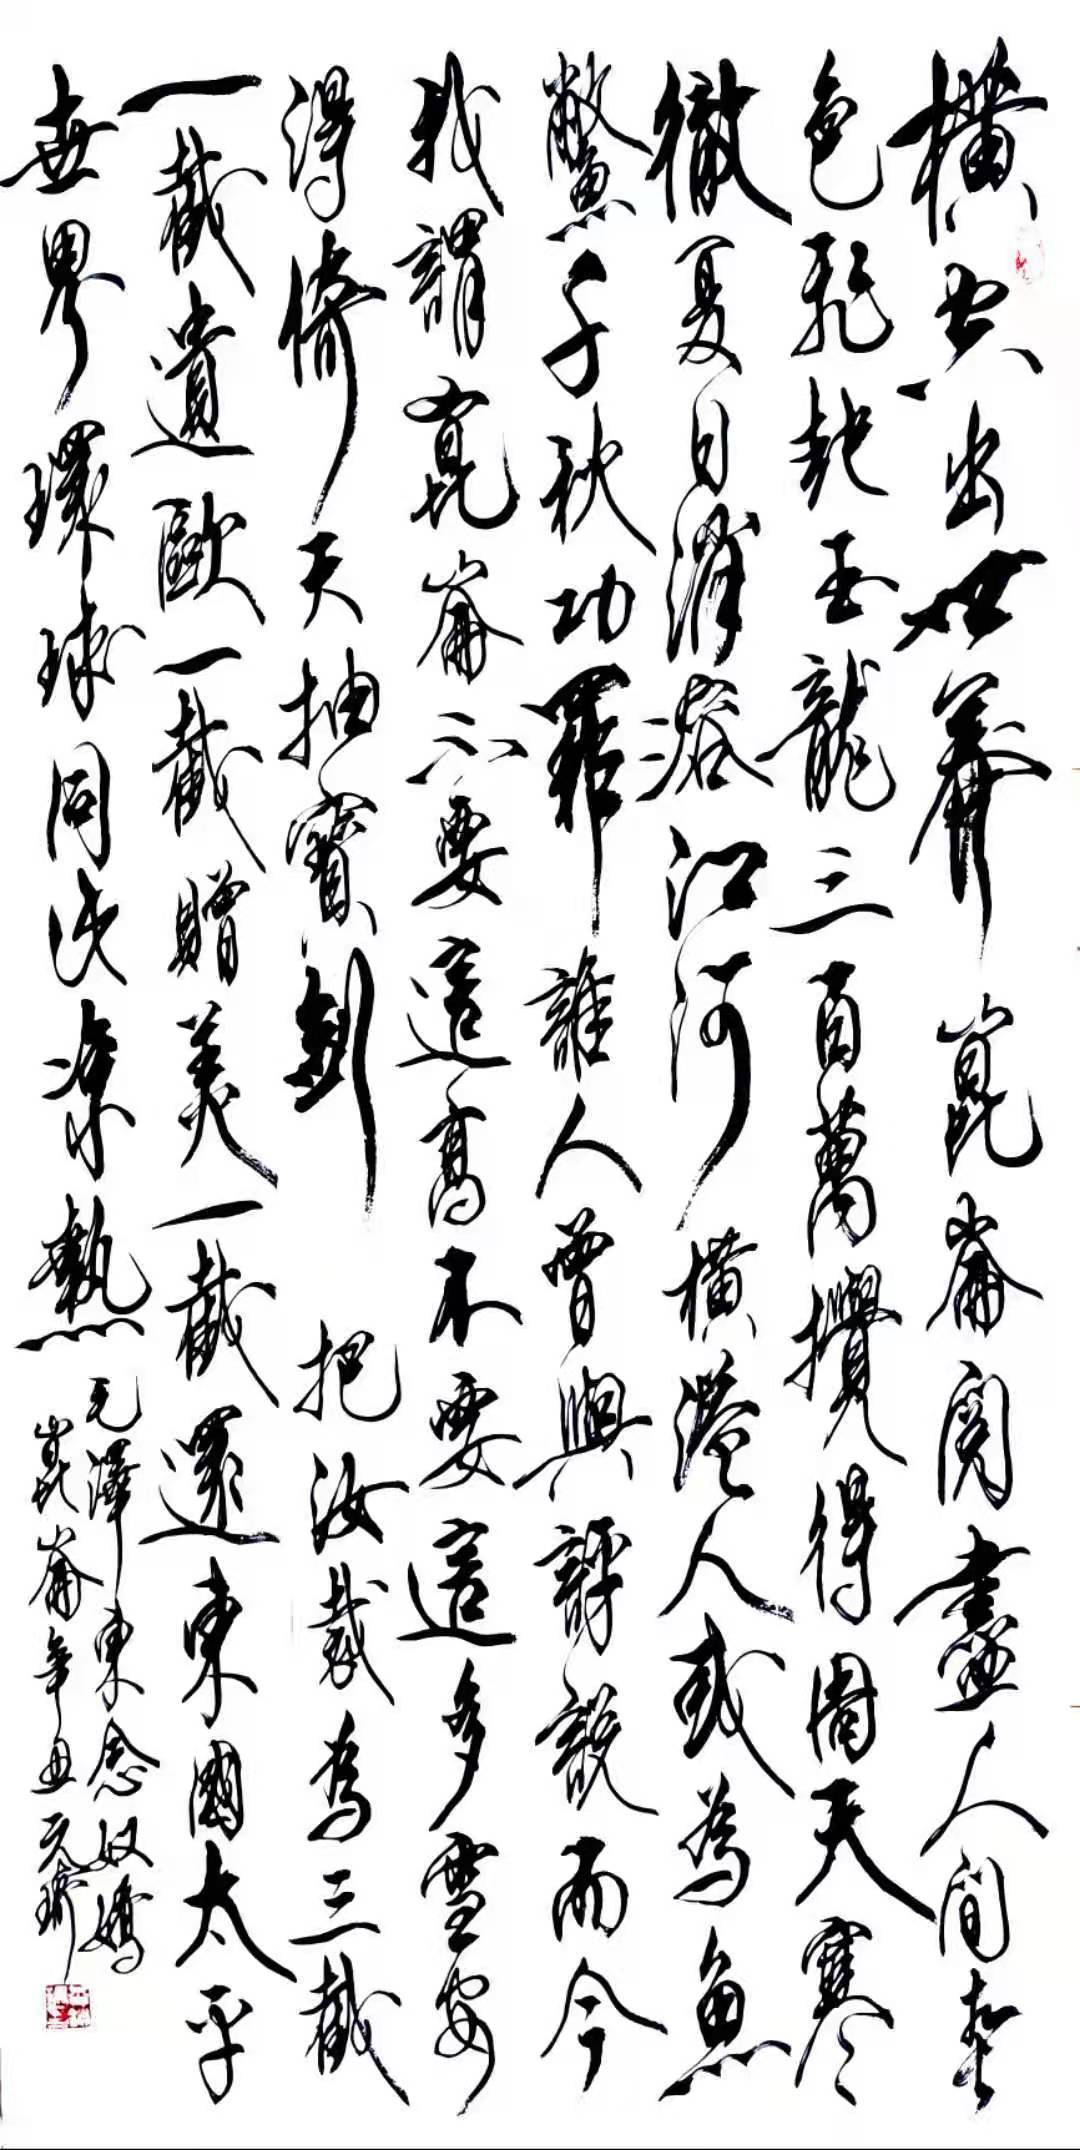 橫空出世莽崑崙閱盡人間春
色飛起玉龍三百萬攪得周天寒
徹夏日消溶江河橫溢人或為魚
鱉千秋功罪誰人曾與評說而今
我謂崑崙不要這高不要這多雪安
得倚天抽寶劍把汝裁為三截
一截遺歐一截贈美一截還東國太平
世界環球同此涼熱
毛澤東念奴嬌
崑崙辛丑